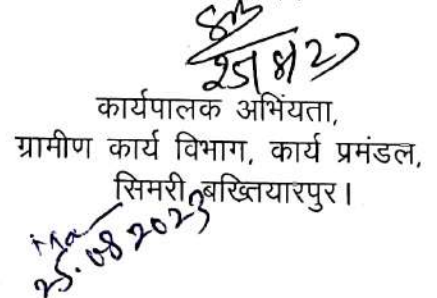 25/8/23
कार्यपालक अभिंयता,
ग्रामीण कार्य विभाग, कार्य प्रमंडल,
सिमरी बख्तियारपुर।
25.08.2023